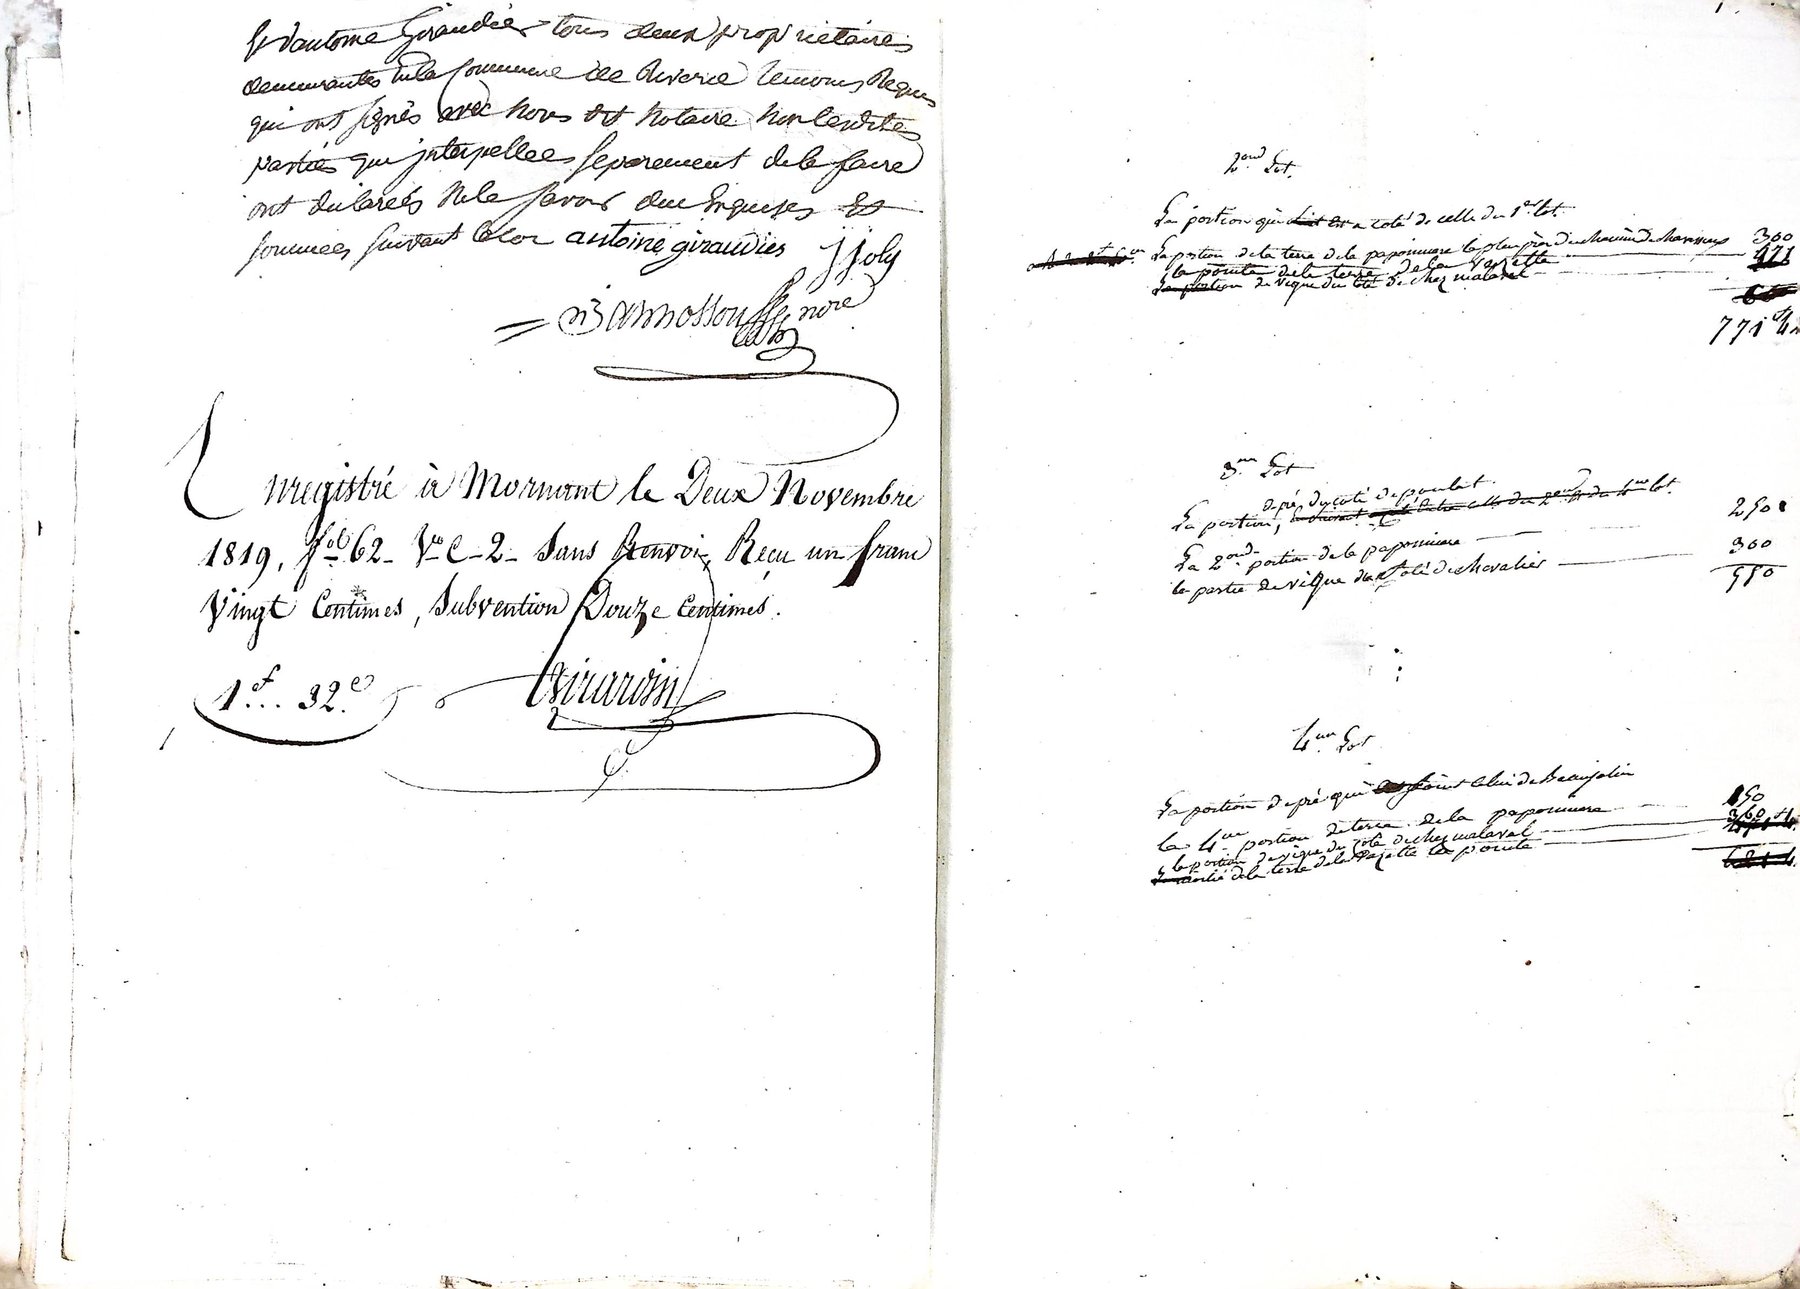 Sr antoine Giraudier tous deux propriétaires
demeurantes en la Commune de Riverie temoins Requis
qui ont signés avec Nous dit Notaire non lesdites
parties qui interpellees separement de le faire
ont déclarés ne le savoir de ce Enquises Et
sommées suivant la loi antoine giraudier jjoly
nore
Enregistré à Mornant le Deux Novembre
1819, fol 62 Vo C 2 Sans Renvoi, Reçu un franc
Vingt Centimes, Subvention Douze Centimes.
1f... 32c
Girardin
2ond Lot.
La portion qui est a coté de celle du 1er lot.
La portion de la terre de la paponniere la plus près du chemin de 300
la pointe de la terre de la Vazelle 471
La portion de vigne du coté de chez malaval
771 4
3me Lot
de pré du coté de
La portion, 250
La 2onde portion de la paponniere 300
la partie de vigne du Coté de chevalier 550
4me Lot
La portion de pré qui joint celui de Beaujolin 150
la 4me portion de terre de la paponniere 360
la portion de vigne du coté de chez malaval
de la terre de la Vazelle la pointe